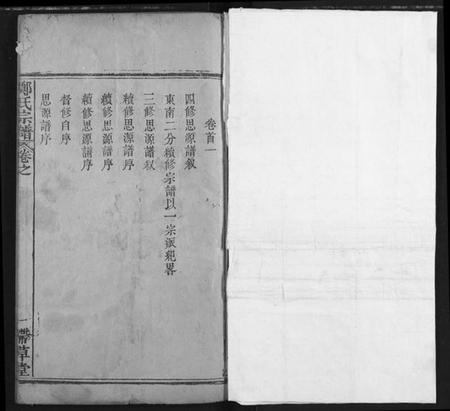 卷首一
四修思源譜叙
東南二分續修宗譜以一宗派紀畧
三修思源譜叙
續修思源譜序
續修思源譜序
續修思源譜序
督修自序
思源譜序
鄭氏宗譜卷之
一
帶草堂